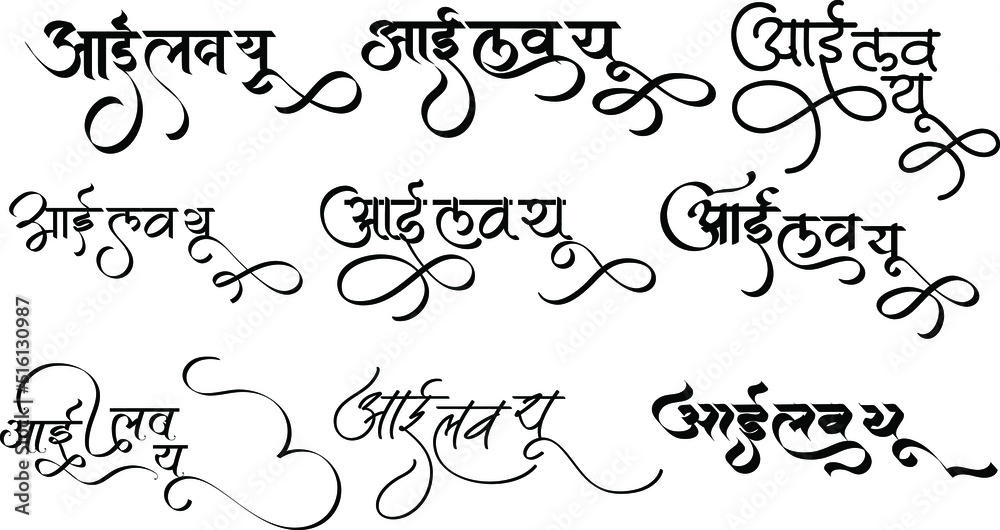 आई लव यू आई लव यू आई लव
यू
आई लव यू आई लव यू आई लव यू
आई लव
यू
आई लव यू आई लव यू
Adobe Stock | #516130987